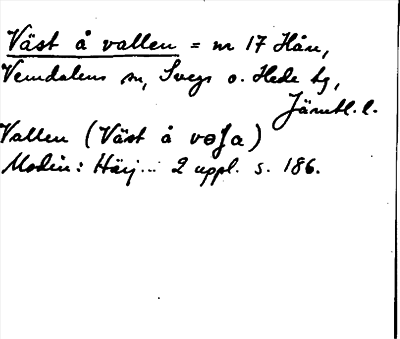 Väst å vallen = nr 17 Hån,
Vemdalens sn, Svegs o. Hede tg,
Jämtl. l.
Vallen (Väst å
Modin: Härj... 2 uppl. s. 186.